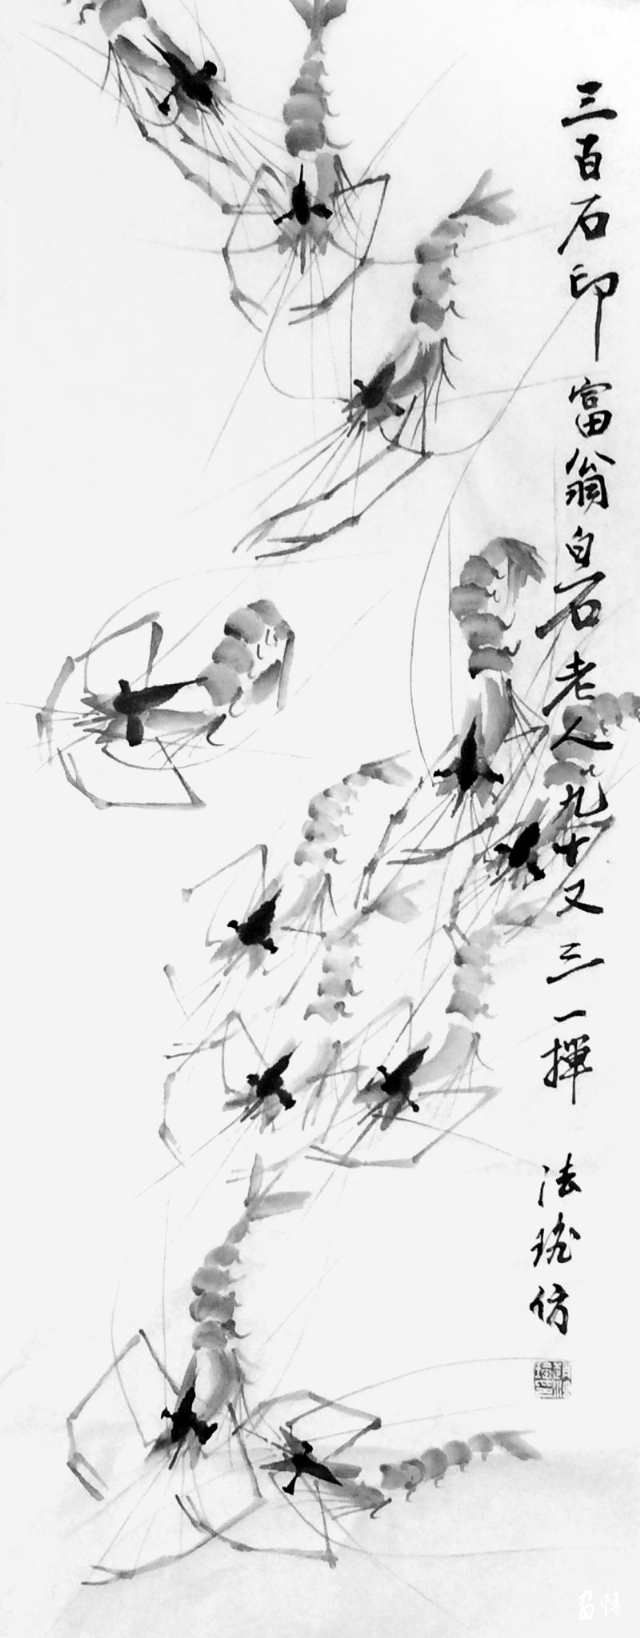 三百石印富翁白石老人九十又三一揮
法瑢仿